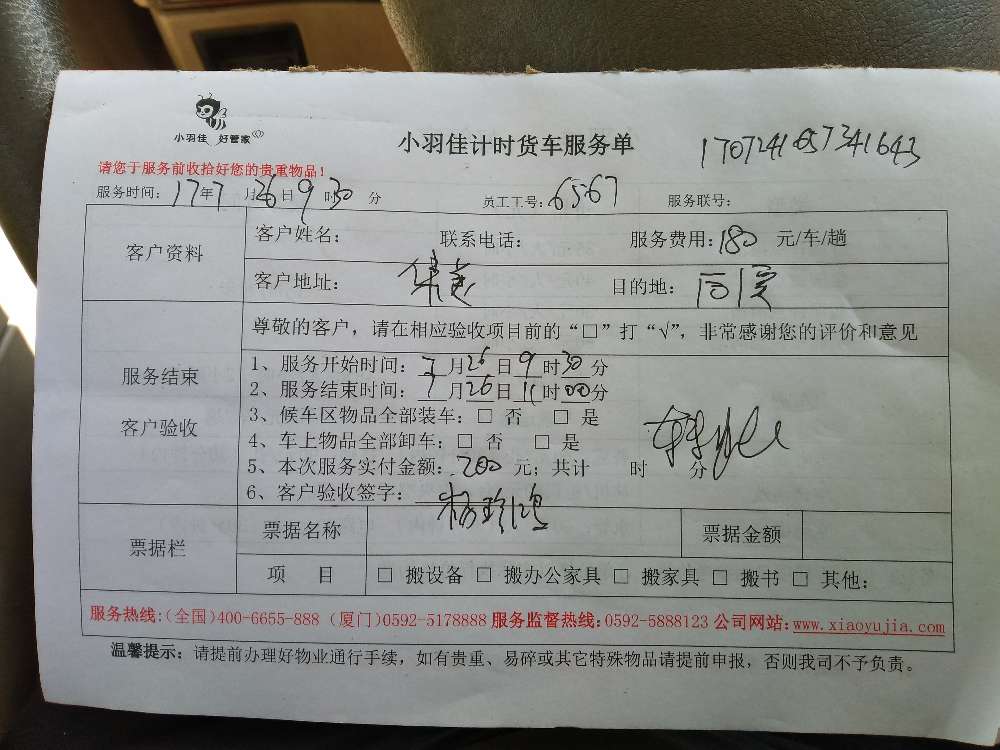 小羽佳 好管家
小羽佳计时货车服务单
1707241657341643
请您于服务前收拾好您的贵重物品！
服务时间：17年7月26日9时30分 员工工号：6567 服务联号：
客户资料
客户姓名： 联系电话： 服务费用：180 元/车/趟
客户地址： 目的地：
服务结束
客户验收
尊敬的客户，请在相应验收项目前的“□”打“√”，非常感谢您的评价和意见
1、服务开始时间：7月26日9时30分
2、服务结束时间：7月26日11时00分
3、候车区物品全部装车：□ 否 □ 是
4、车上物品全部卸车：□ 否 □ 是
5、本次服务实付金额：200元；共计 时 分
6、客户验收签字：杨珍鸿
票据栏
票据名称 票据金额
项 目 □ 搬设备 □ 搬办公家具 □ 搬家具 □ 搬书 □ 其他：
服务热线：(全国)400-6655-888 (厦门)0592-5178888 服务监督热线：0592-5888123 公司网站：www.xiaoyujia.com
温馨提示：请提前办理好物业通行手续，如有贵重、易碎或其它特殊物品请提前申报，否则我司不予负责。